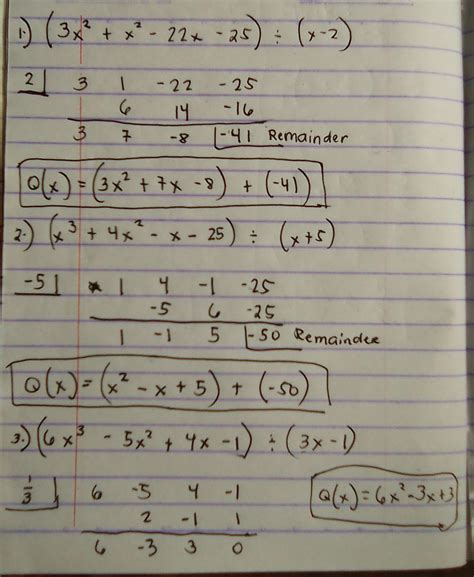 1.) (3x² + x² - 22x - 25) ÷ (x-2)
2 3 1 -22 -25
6 14 -16
3 7 -8 -41 Remainder
Q(x) = (3x² + 7x - 8) + (-41)
2.) (x³ + 4x² - x - 25) ÷ (x+5)
-5 1 4 -1 -25
-5 6 -25
1 -1 5 -50 Remainder
Q(x) = (x² - x + 5) + (-50)
3.) (6x³ - 5x² + 4x - 1) ÷ (3x - 1)
1/3 6 -5 4 -1
2 -1 1
6 -3 3 0
Q(x) = 6x² - 3x + 3